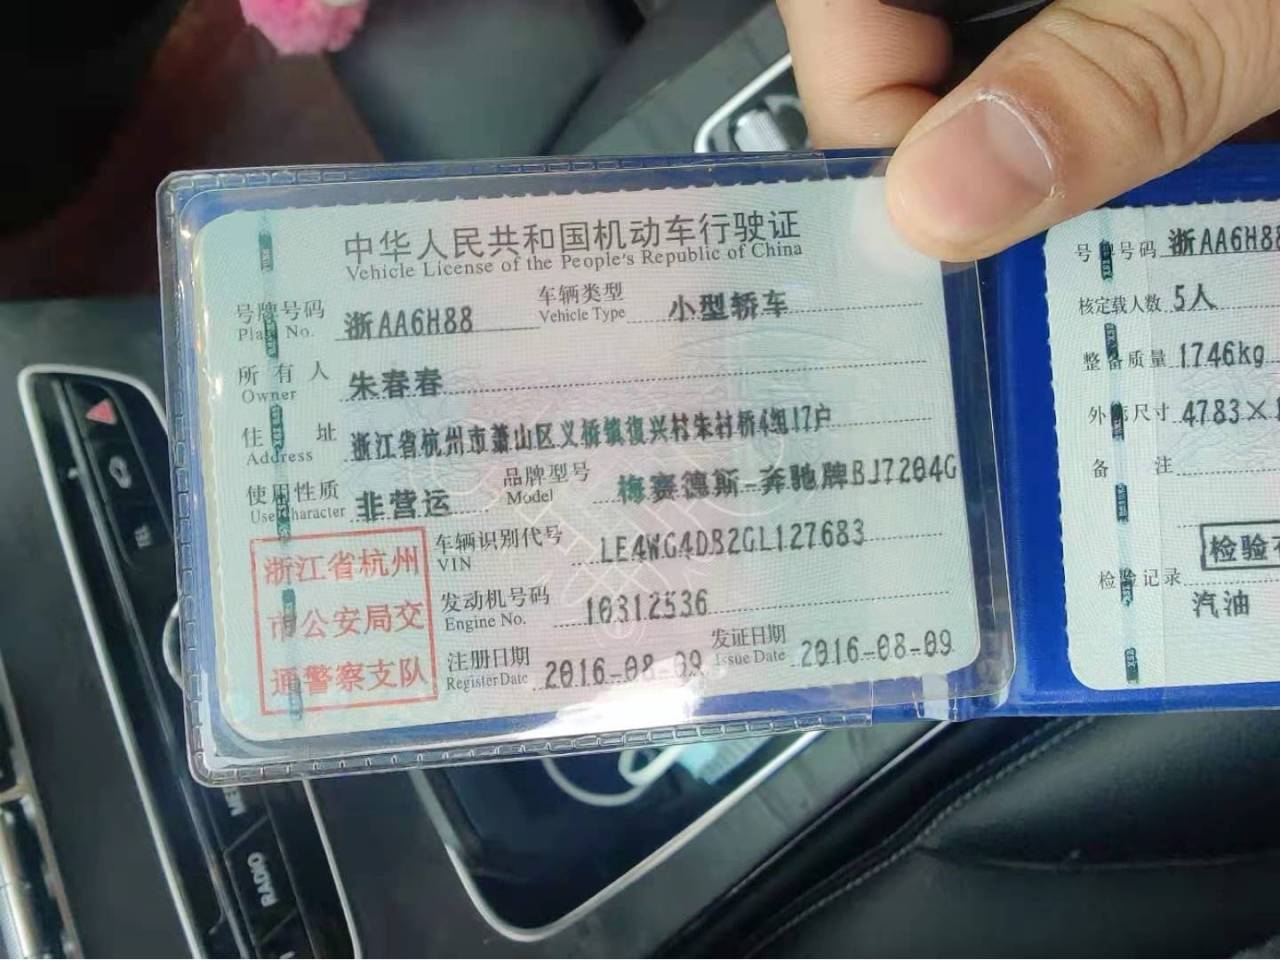 中华人民共和国机动车行驶证
Vehicle License of the People's Republic of China
号牌号码 浙AA6H88 车辆类型 小型轿车
Plate No. Vehicle Type
所有人 朱春春
Owner
住址 浙江省杭州市萧山区义桥镇復兴村朱村桥4组17户
Address
使用性质 非营运 品牌型号 梅赛德斯-奔驰牌BJ7204G
Use Character Model
车辆识别代号 LE4WG4DB2GL127683
VIN
发动机号码 10312536
Engine No.
注册日期 2016-08-09 发证日期 2016-08-09
Register Date Issue Date
浙江省杭州
市公安局交
通警察支队
号牌号码 浙AA6H88
核定载人数 5人
整备质量 1746kg
外廓尺寸 4783×
备注
检验
检验记录
汽油
RADIO